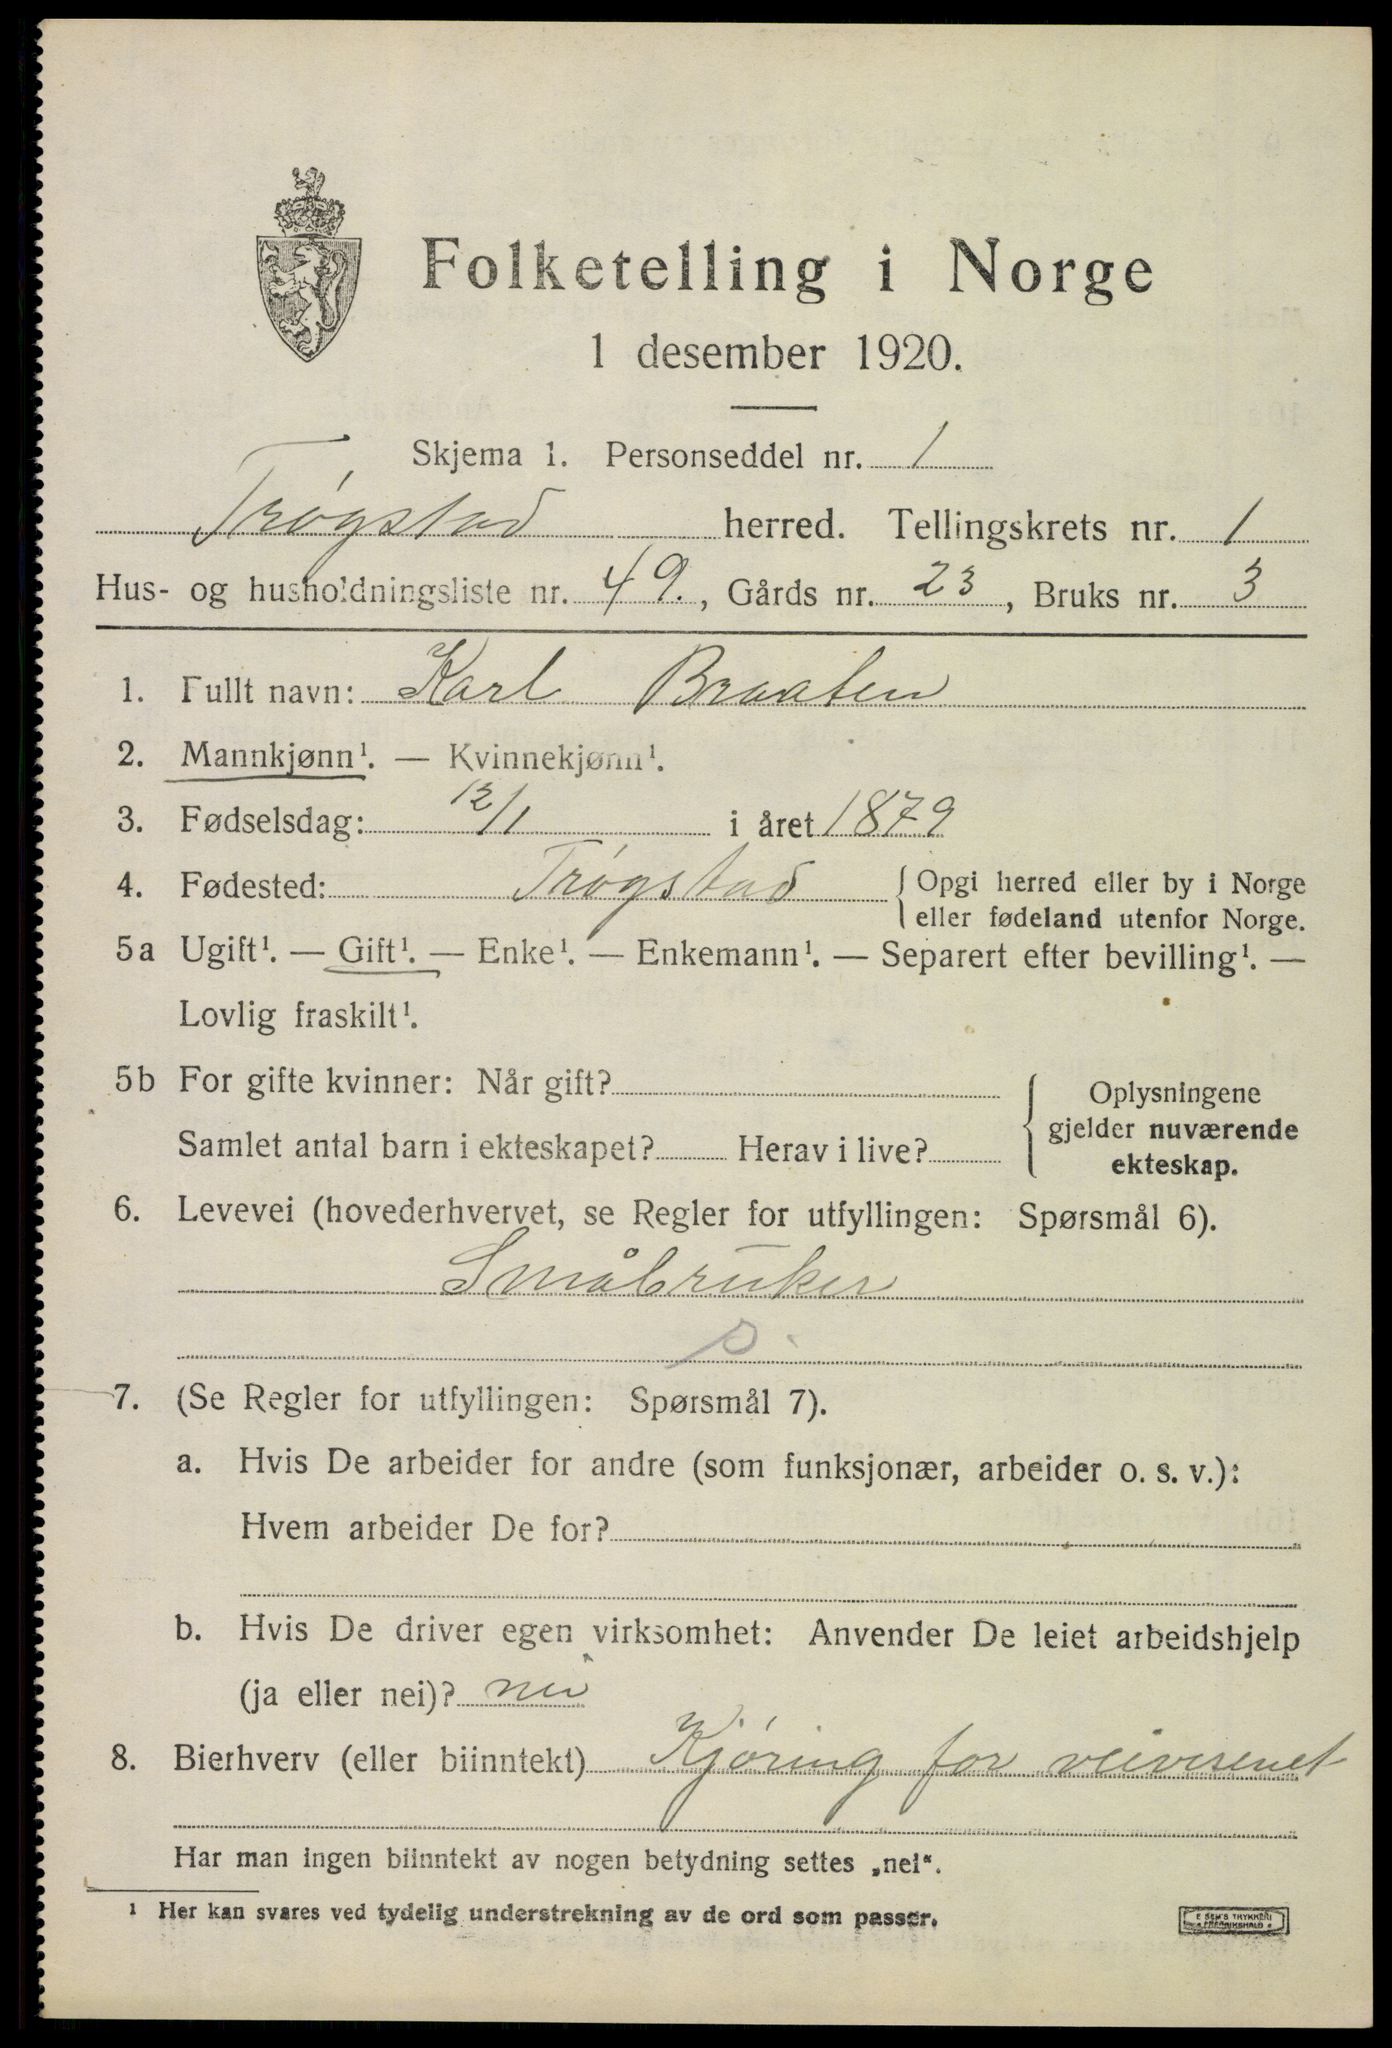 Folketelling i Norge
1 desember 1920.
Skjema 1. Personseddel nr. 1
Trøgstad herred. Tellingskrets nr. 1
Hus- og husholdningsliste nr. 49., Gårds nr. 23, Bruks nr. 3
1. Fullt navn: Karl Braaten
2. Mannkjønn¹. — Kvinnekjønn¹.
3. Fødselsdag: 12/1 i året 1879
4. Fødested: Trøgstad { Opgi herred eller by i Norge
eller fødeland utenfor Norge.
5a Ugift¹. — Gift¹. — Enke¹. — Enkemann¹. — Separert efter bevilling¹. —
Lovlig fraskilt¹.
5b For gifte kvinner: Når gift?
Samlet antal barn i ekteskapet? Herav i live?
{ Oplysningene
gjelder nuværende
ekteskap.
6. Levevei (hovederhvervet, se Regler for utfyllingen: Spørsmål 6).
Småbruker
7. (Se Regler for utfyllingen: Spørsmål 7).
a. Hvis De arbeider for andre (som funksjonær, arbeider o. s. v.):
Hvem arbeider De for?
b. Hvis De driver egen virksomhet: Anvender De leiet arbeidshjelp
(ja eller nei)? nei
8. Bierhverv (eller biinntekt) Kjøring for veivesenet
Har man ingen biinntekt av nogen betydning settes „nei“.
¹ Her kan svares ved tydelig understrekning av de ord som passer.
E SEM'S TRYKKERI
FREDRIKSHALD